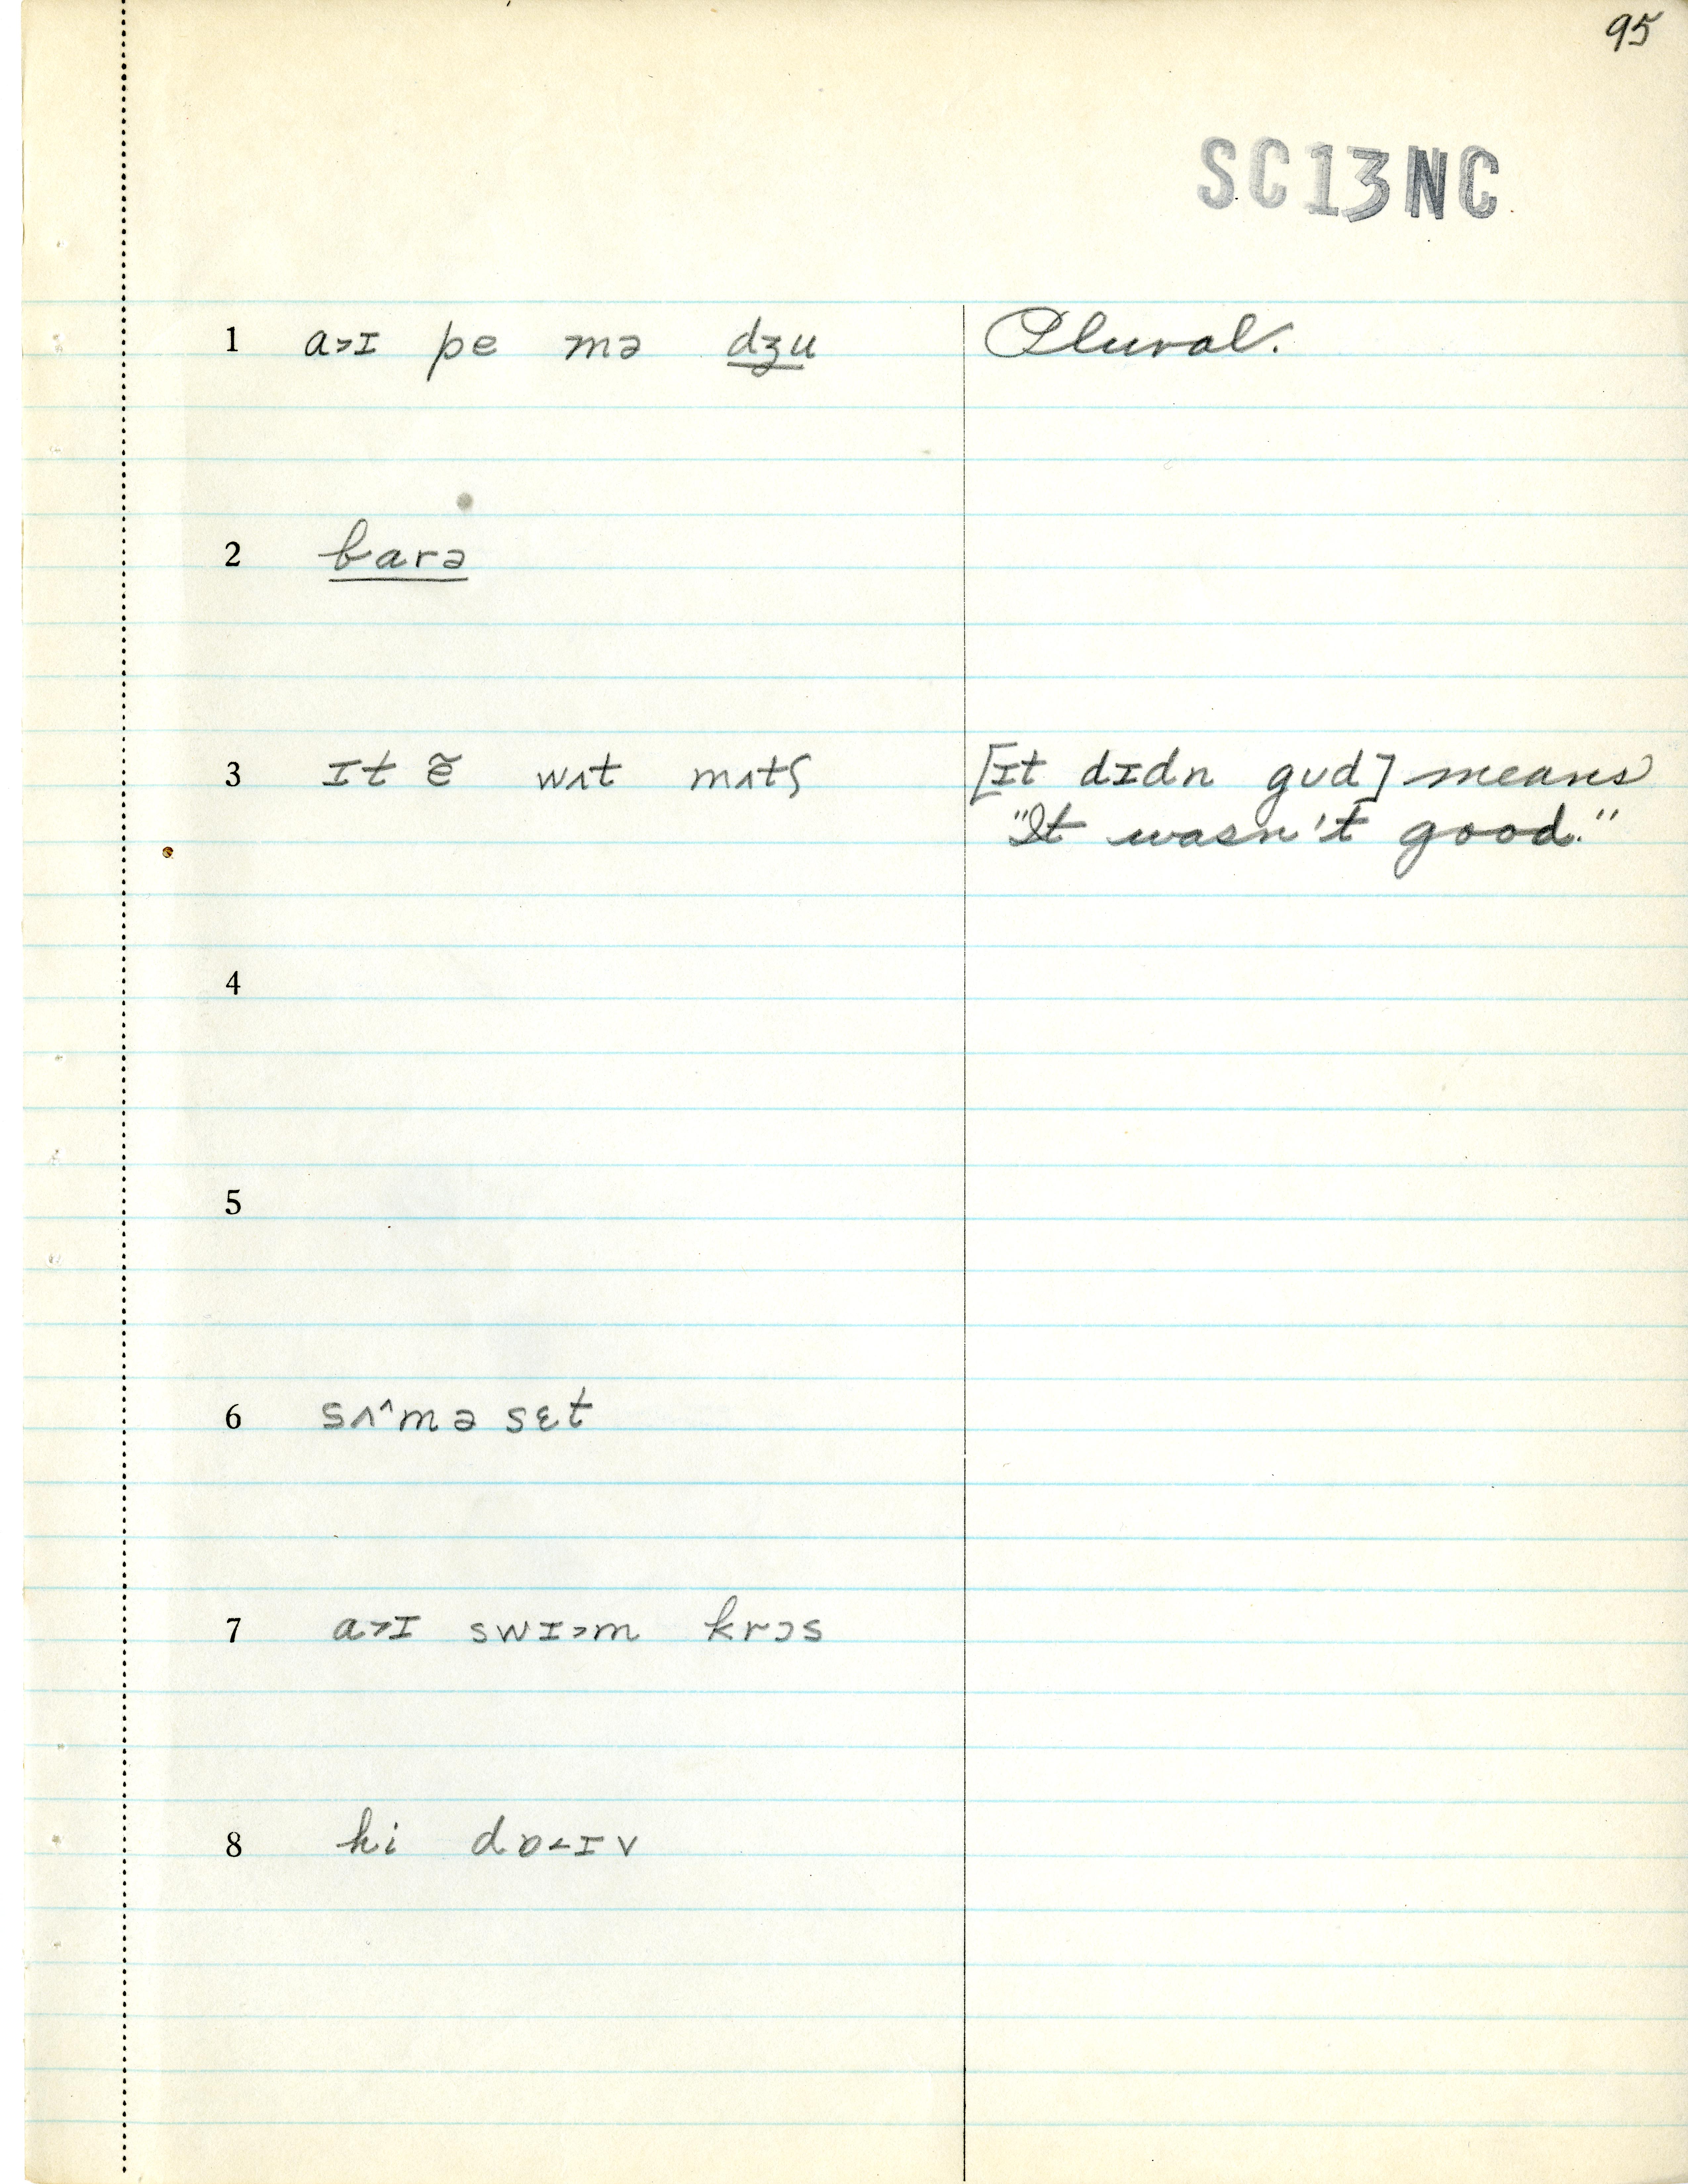 95
SC13NC
1 a˃ɪ pe mə dʒu Plural.
2 barə
3 ɪt ẽ wʌt mʌtʃ [ɪt dɪdn gʊd] means
"It wasn't good."
4
5
6 sʌ˄mə sɛt
7 a˃ɪ swɪ˃m krɔs
8 hi dɒ˂ɪv